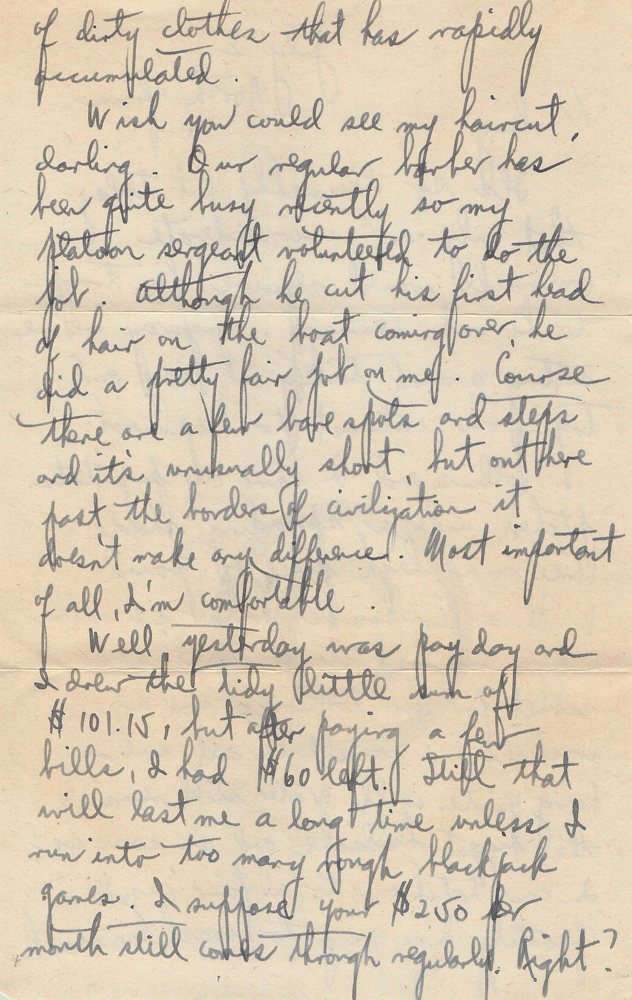 of dirty clothes that has rapidly
accumulated.
Wish you could see my haircut,
darling. Our regular barber has
been quite busy recently so my
platoon sergeant volunteered to do the
job. Although he cut his first head
of hair on the boat coming over, he
did a pretty fair job on me. Course
there are a few bare spots and steps
and it's unusually short, but out here
past the borders of civilization it
doesn't make any difference. Most important
of all, I'm comfortable.
Well, yesterday was pay day and
I drew the tidy little sum of
$101.15, but after paying a few
bills, I had $60 left. Still that
will last me a long time unless I
run into too many rough blackjack
games. I suppose your $250 per
month still comes through regularly. Right?